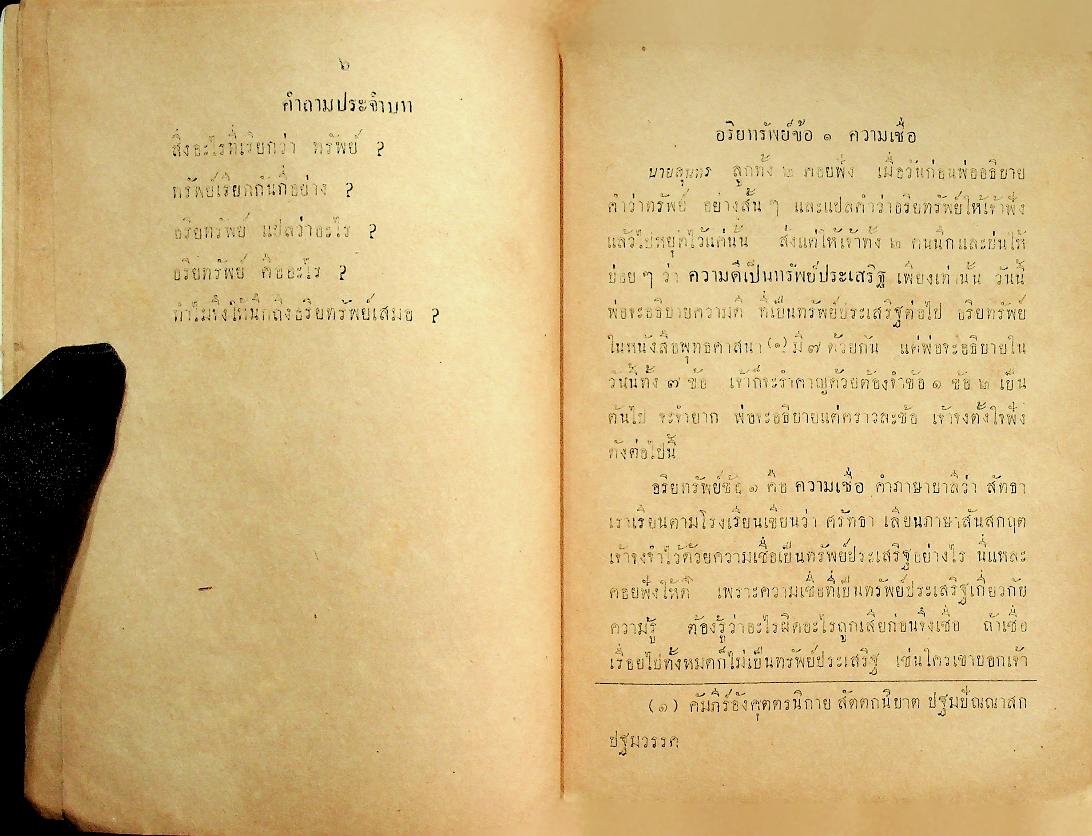 ๖
คำถามประจำบท
สิ่งอะไรที่เรียกว่า ทรัพย์ ?
ทรัพย์เรียกกันกี่อย่าง ?
อริยทรัพย์ แปลว่าอะไร ?
อริยทรัพย์ คืออะไร ?
ทำไมจึงให้นึกถึงอริยทรัพย์เสมอ ?
อริยทรัพย์ข้อ ๑ ความเชื่อ
นายสุนทร ลูกทั้ง ๒ คอยฟัง เมื่อวันก่อนพ่ออธิบาย
คำว่าทรัพย์ อย่างสั้น ๆ และแปลคำว่าอริยทรัพย์ให้เจ้าฟัง
แล้วไปหยุดไว้แค่นั้น สั่งแต่ให้เจ้าทั้ง ๒ คนนึกและบ่นให้
บ่อย ๆ ว่า ความดีเป็นทรัพย์ประเสริฐ เพียงเท่านั้น วันนี้
พ่อจะอธิบายความดี ที่เป็นทรัพย์ประเสริฐต่อไป อริยทรัพย์
ในหนังสือพุทธศาสนา (๑) มี ๗ ด้วยกัน แต่พ่อจะอธิบายใน
วันนี้ทั้ง ๗ ข้อ เจ้าก็จะรำคาญด้วยต้องจำข้อ ๑ ข้อ ๒ เป็น
ต้นไป จะจำยาก พ่อจะอธิบายแต่คราวละข้อ เจ้าจงตั้งใจฟัง
ดังต่อไปนี้
อริยทรัพย์ข้อ ๑ คือ ความเชื่อ คำภาษาบาลีว่า สัทธา
เราเรียนตามโรงเรียนเขียนว่า ศรัทธา เลียนภาษาสันสกฤต
เจ้าจงจำไว้ด้วยความเชื่อเป็นทรัพย์ประเสริฐอย่างไร นี่แหละ
คอยฟังให้ดี เพราะความเชื่อที่เป็นทรัพย์ประเสริฐเกี่ยวกับ
ความรู้ ต้องรู้ว่าอะไรผิดอะไรถูกเสียก่อนจึงเชื่อ ถ้าเชื่อ
เรื่อยไปทั้งหมดก็ไม่เป็นทรัพย์ประเสริฐ เช่นใครเขาบอกเจ้า
(๑) คัมภีร์อังคุตตรนิกาย สัตตกนิบาต ปฐมปัณณาสก
ปฐมวรรค